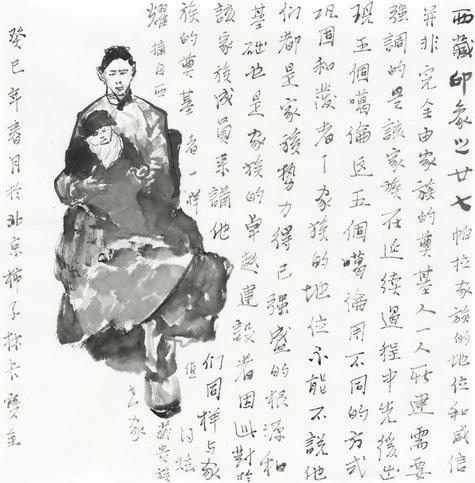 西藏印象之廿七 帕拉家族的地位和威信
并非完全由家族的奠基人一人所建需要
强調的是該家族在延续過程中先後出
现五個噶倫这五個噶倫用不同的方式
巩固和發者了家族的地位不能不說他
们都是家族势力得已强盛的根源和
基础也是家族的卓越建設者因此對於
該家族成員来講他们同样与家
族的奠基者一样值得炫
耀 摘自西藏贵族
世家
癸巳年春月於北京柿子林卡寶全